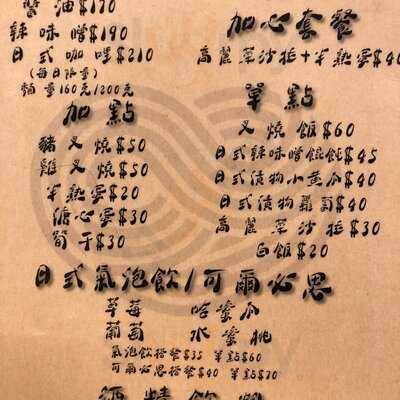 醬油$170
辣味噌$190
日式咖哩$210
(每日限量)
麵量160克/200克
加點
豬叉燒$50
雞叉燒$50
半熟蛋$20
溏心蛋$30
筍干$30
加心套餐
高麗菜沙拉+半熟蛋$40
單點
叉燒飯$60
日式辣味噌餛飩$45
日式漬物小黃瓜$40
日式漬物蘿蔔$40
高麗菜沙拉$30
白飯$20
日式氣泡飲/可爾必思
草莓 哈蜜瓜
葡萄 水蜜桃
氣泡飲搭餐$35 單點$60
可爾必思搭餐$40 單點$70
酒精飲